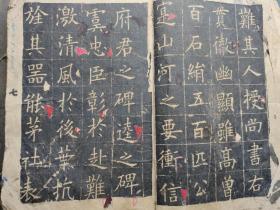 難其人授尚書右
貫徹幽顯雖高曾
百石絹五百匹公
寔山河之要衝信
府君之碑逵之碑
虞忠臣彰於赴難
激清風於後葉抗
旌其器能茅社表
七